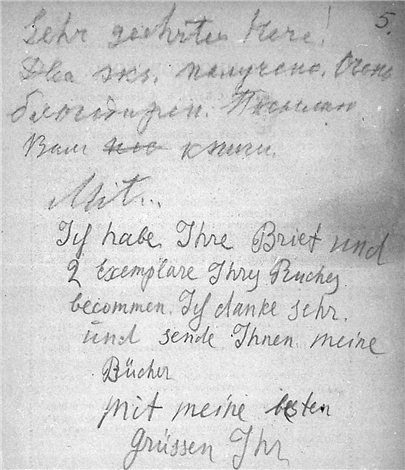 5.
Sehr geehrter Herr!
Два экз. получено. Очень
благодарен. Посылаю
Вам книги.
Mit...
Ich habe Ihre Brief und
2 Exemplare Ihres Buches
becommen. Ich danke sehr.
und sende Ihnen meine
Bücher
mit meine besten
Grüssen Ihr